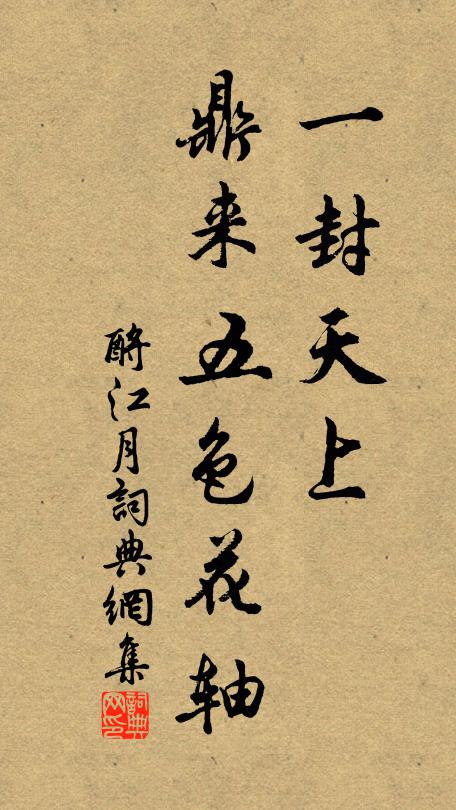 一封天上
鼎来五色花轴
酹江月詞典網集
詞典
网印